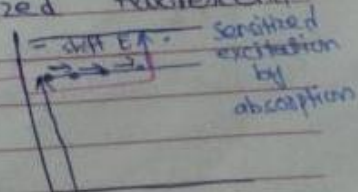 zed
shift E
sensitized
excitation
by
absorption